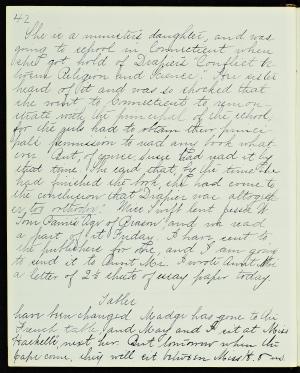 42
She is a minister's daughter, and was
going to school in Connecticut when
she got hold of Draper's "Conflict be
tween Religion and Science." Her sister
heard of it and was so shocked that
she went to Connecticut to remon-
strate with the principal of the school,
for the girls had to obtain their princi-
pal's permission to read any book what
ever. But, of course, had read it by
that time. She said that, by the time she
had finished the book, she had come to
the conclusion that Draper was altogeth
er Miss Swift lent
Tom Paine's "Age of Reason" and we read
a part of it Friday. I have sent to
the publishers for one, and I am going
to send it to Aunt Mae. I wrote Aunt Mae
a letter of 2½ sheets of essay paper today.
Table
have been changed Madge has gone to the
French table, and May and I sit at Miss
next her. But tomorrow when the
come, she will sit between Miss H. & us.